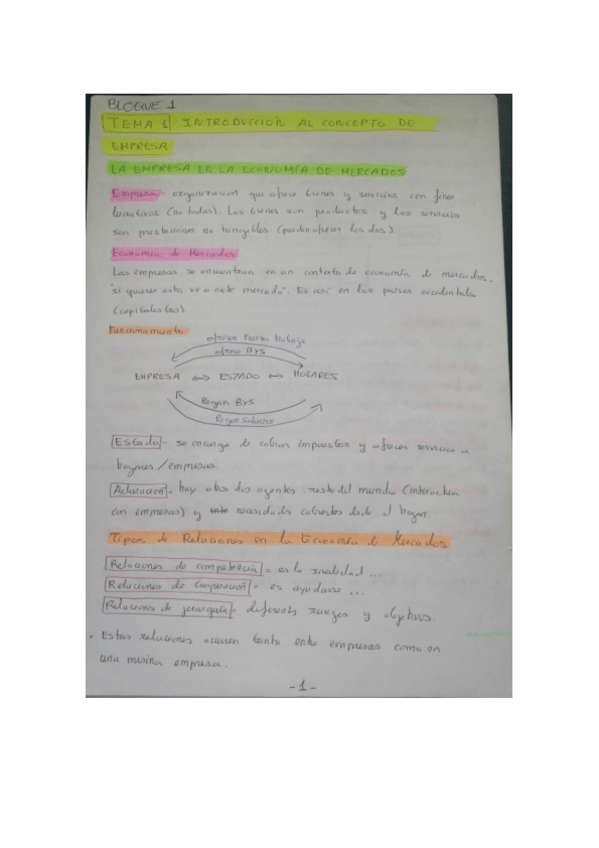 BLOQUE 1
TEMA 1 INTRODUCCIÓN AL CONCEPTO DE
EMPRESA
LA EMPRESA EN LA ECONOMÍA DE MERCADOS
Empresa = organización que ofrece bienes y servicios con fines
lucrativos (no todas). Los bienes son productos y los servicios
son prestaciones no tangibles. (pueden ofrecer los dos)
Economía de Mercados
Las empresas se encuentran en un contexto de economía de mercados,
"si quieres esto ve a este mercado". Es así en los países occidentales
(capitalistas).
Funcionamiento
ofrecen fuerza trabajo
ofrece BYS
EMPRESA ↔ ESTADO ↔ HOGARES
Pagan BYS
Pagan salarios
Estado = se encarga de cobrar impuestos y ofrecer servicios a
hogares/empresas.
Aclaración = hay otros dos agentes: resto del mundo (interactua
con empresas) y necesidades cubiertas desde el hogar.
Tipos de Relaciones en la Economía de Mercados
Relaciones de competencia = es la rivalidad ...
Relaciones de cooperación = es ayudarse ...
Relaciones de jerarquía = diferentes rangos y objetivos.
• Estas relaciones ocurren tanto entre empresas como en
una misma empresa.
-1-